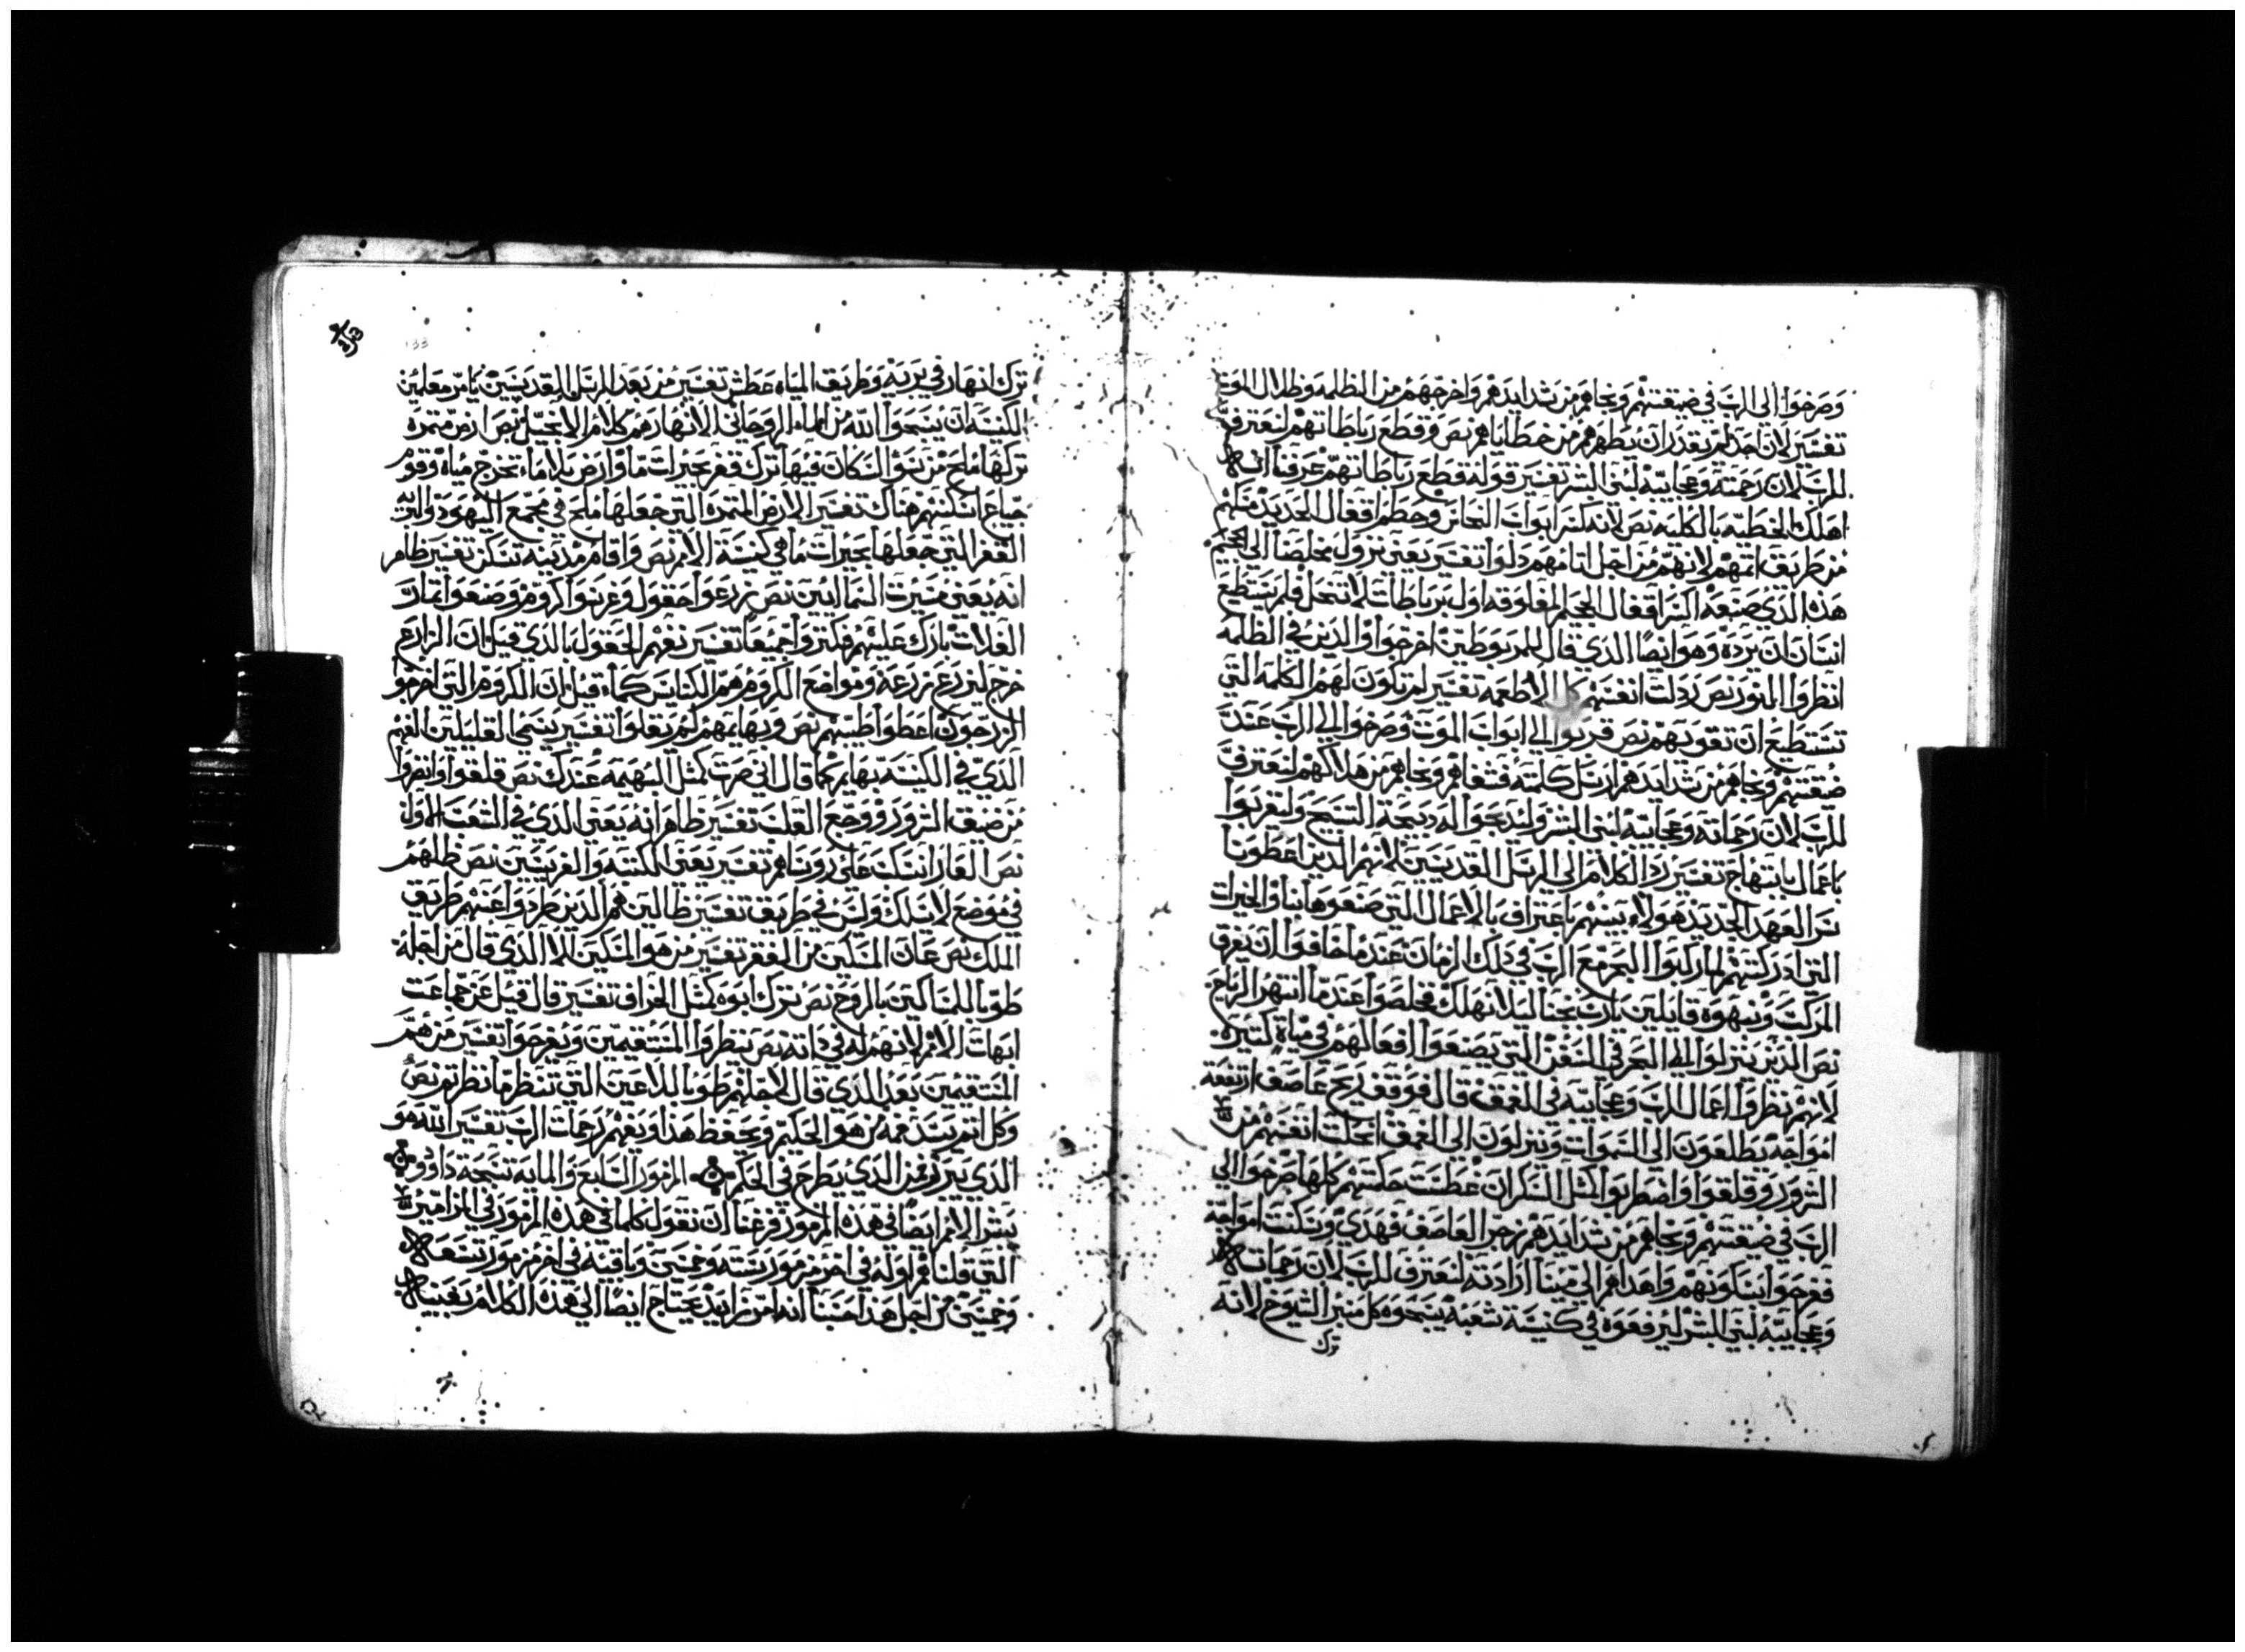 وصرخوا الى الرب في ضيقتهم ونجاهم من شدايدهم واخرجهم من الظلمه وظلال الموت
تفسير لان احد لم يقدر ان يطهرهم من خطاياهم نص وقطع رباطاتهم لنعترف
للرب لان رحمته وعجايبه لبني البشر تفسير قوله قطع رباطاتهم عرفنا انه
اهلك الخطيه بالكليه نص لانه كسر ابواب النحاس وحطم اقفال الحديد قبلهم
من طريق اثمهم لانهم من اجل اثامهم دلوا تفسير يعني نزول مخلصنا الى الجحيم
هذه الذي صنعه كسر اقفال الجحيم المغلوقه اول برباطات لا تنحل فلم يستطيع
انسان ان يرده وهو ايضا الذي قال للمربوطين اخرجوا والذين في الظلمه
انظروا النور نص ردلت انفسهم كل الاطعمه تفسير لم تكون لهم الكلمه التي
تستطيع ان تقويهم نص قربوا الى ابواب الموت وصرخوا الى الرب عند
ضيقتهم ونجاهم من شدايدهم ارسل كلمته فشفاهم ونجاهم من هلاكهم لنعترف
للرب لان رحماته وعجايبه لبني البشر وليدبحوا له دبيحة التسبيح وليقربوا
باعمال بابتهاج تفسير رد الكلام الى الرسل القديسين لانهم الدين اعطونا
سر العهد الجديد هولاء بينهم باعتراف بالاعمال التي صنعوها بنا والخيرات
التي ادركتهم لما ركبوا البحر مع الرب في دلك الزمان عندما خافوا ان يغرق
المركب ونبهوه قايلين يارب نجنا ليلا نهلك فخلصوا عندما انتهر الرياح
نص الذين ينزلوا الى البحر في السفن التي يصنعوا افعالهم في مياه كثيره
لانهم نظروا اعمال الرب وعجايبه في العمق قال فوقف ريح عاصف ارتفعة
امواجه يطلعون الى السموات وينزلون الى العمق انحلت انفسهم من
الشرور وقلقوا واضطربوا كمثل السكران غطست حكمتهم كلها صرخوا الى
الرب في ضيقتهم ونجاهم من شدايدهم زجر العاصف فهدي وسكنت امواجه
ففرحوا بسكونهم واهداهم الى مينا ارادته لنعترف للرب لان رحماته
وعجايبه لبني البشر ليرفعوه في كنيسة شعبه يسبحوه كل منبر الشيوخ لانه
ترك
ترك انهار في بريه وطريق المياه عطش تفسير من بعد الرسل القديسين يامر معلمين
الكنيسه ان يسبحوا الله من الماء الروحاني الانهار هم كلام الانجيل نص ارض مثمره
تركها ملح من سوء السكان فيها ترك قفر بحيرات ما وارض بلا ماء تخرج مياه وقوم
جياع اسكنهم هناك تفسير الارض المثمره التي جعلها ملح في مجمع اليهود والبريه
القفر التي جعلها بحيرات ما هي كنيسة الامم نص واقام مدينه تسكن تفسير ظاهر
انه يعني سيرت السمايين نص زرعوا حقول وغرسوا كروم وصنعوا اثمار
الغلات بارك عليهم فكثروا جميعا تفسير نفهم الحقول بالذي قيل ان الزارع
خرج ليزرع زرعه ومواضع الكروم هم الكنايس كما قيل ان الكروم التي اخرجوا
الزرجون اعطوا طيبهم نص وبهايمهم لم يقلوا تفسير يسمي القليلين الفهم
الذي في الكنيسه بهايم كما قال اني صرت كمثل البهيمه عندك نص قلقوا وانصروا
من ضيق الشرور ووجع القلب تفسير ظاهر انه يعني الذي في الشعب الاول
نص العار انسكب على روساهم تفسير يعني الكتبه والفريسيين نص ظلهم
في موضع لا يسلك وليس في طريق تفسير ظالين هم الدين طردوا عنهم طريق
الملك نص عان المسكين من الفقر تفسير من هو المسكين الا الذي قال من اجله
طوبا للمساكين بالروح نص ترك ابوه كمثل الخراف تفسير قال قيل عن جماعت
ابهات الامم لانهم له في ذاته نص ينظروا المستقيمين ويفرحوا تفسير من هم
المستقيمين بعد الذي قال لاجلهم طوبا للاعين التي تنظر ما نظرتم نص
وكل اثم يسد فمه من هو الحكيم ويحفظ هذا ويفهم رحمات الرب تفسير الله هو
الذي يتبرر من الذي يطرح في الحكم المزمور السابع والمايه تسبحة داوود
يبشر الامم ايضا في هذه المزمور فرغنا ان نقول كلما في هذه المزمور في المزامير
التي قلنا قم اوله في اخر مزمور سته وخمسين وباقيته في اخر مزمور تسعه
وخمسين من اجل هذا حسبنا انه امر زايد يحتاج ايضا الى هذه الكلام بعينه